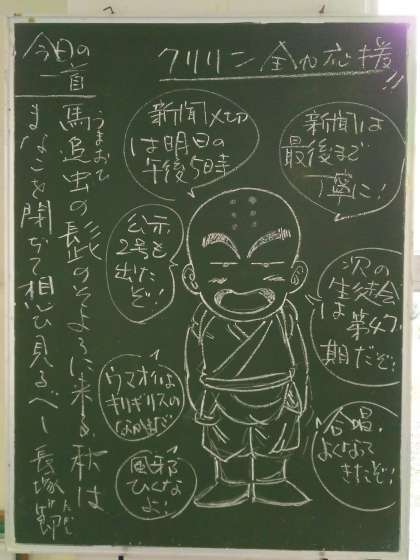 クリリン全力応援!!
今日の
一首
馬追虫の髭のそよろに来る秋は
うまおい
まなこを閉ぢて想ひ見るべし 長塚節
新聞〆切
は明日の
午後5時
新聞は
最後まで
丁寧に!
公示
2号も
出た
ぞ!
次の
生徒会
は第47
期だぞ!
ウマオイは
キリギリスの
なかまだ
風邪
ひくな
よ!
合唱、
よくなって
きたぞ!